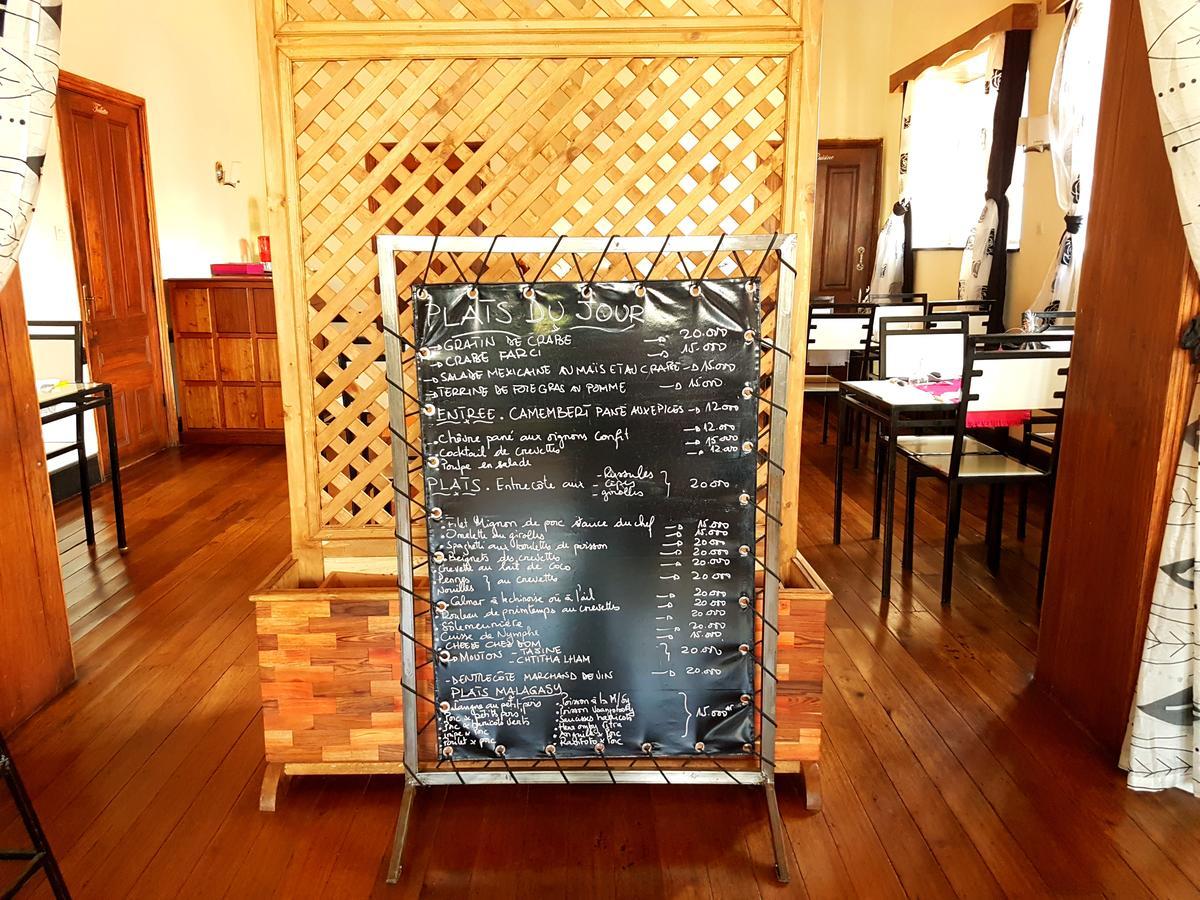 Toilette
Cuisine
PLATS DU JOUR
→ GRATIN DE CRABE → 20.000
→ CRABE FARCI → 15.000
→ SALADE MEXICAINE AU MAÏS ET AU CRABE → 15000
→ TERRINE DE FOIE GRAS AU POMME → 15.000
ENTREE . CAMEMBERT PANE AUX EPICES → 12.000
. Chèvre pané aux oignons confit → 12.000
. Cocktail de crevettes → 15.000
. Poulpe en salade → 12.000
PLATS . Entrecôte aux - Russules
- Ceps } 20.000
- girolles
. Filet Mignon de porc sauce du chef → 15.000
. Omelette au girolles → 15.000
. Spaghetti aux boulettes de poisson → 20.000
. Beignets des crevettes → 20.000
. Crevette au lait de coco → 20.000
. Pennes } au crevettes → 20.000
Nouilles
. Calmar à la chinoise où à l'ail → 20.000
. Rouleau de printemps au crevettes → 20.000
. Sôle meunière → 20.000
. Cuisse de Nymphe → 15.000
. CHEESE CHEZ DOM
→ MOUTON - TAJINE } 20.000
- CHTITHA LHAM
. DENTRECÔTE MARCHAND DE VIN → 20.000
PLATS MALAGASY
. Poisson à la M/Gy
. Porc x petits pois
. Poisson Voanjobory
. Porc x haricots verts
. Saucisses haricots
. Hena omby ritra
} 15.000
. Anguille x Porc
. Poulet x porc
. Ravitoto x Porc